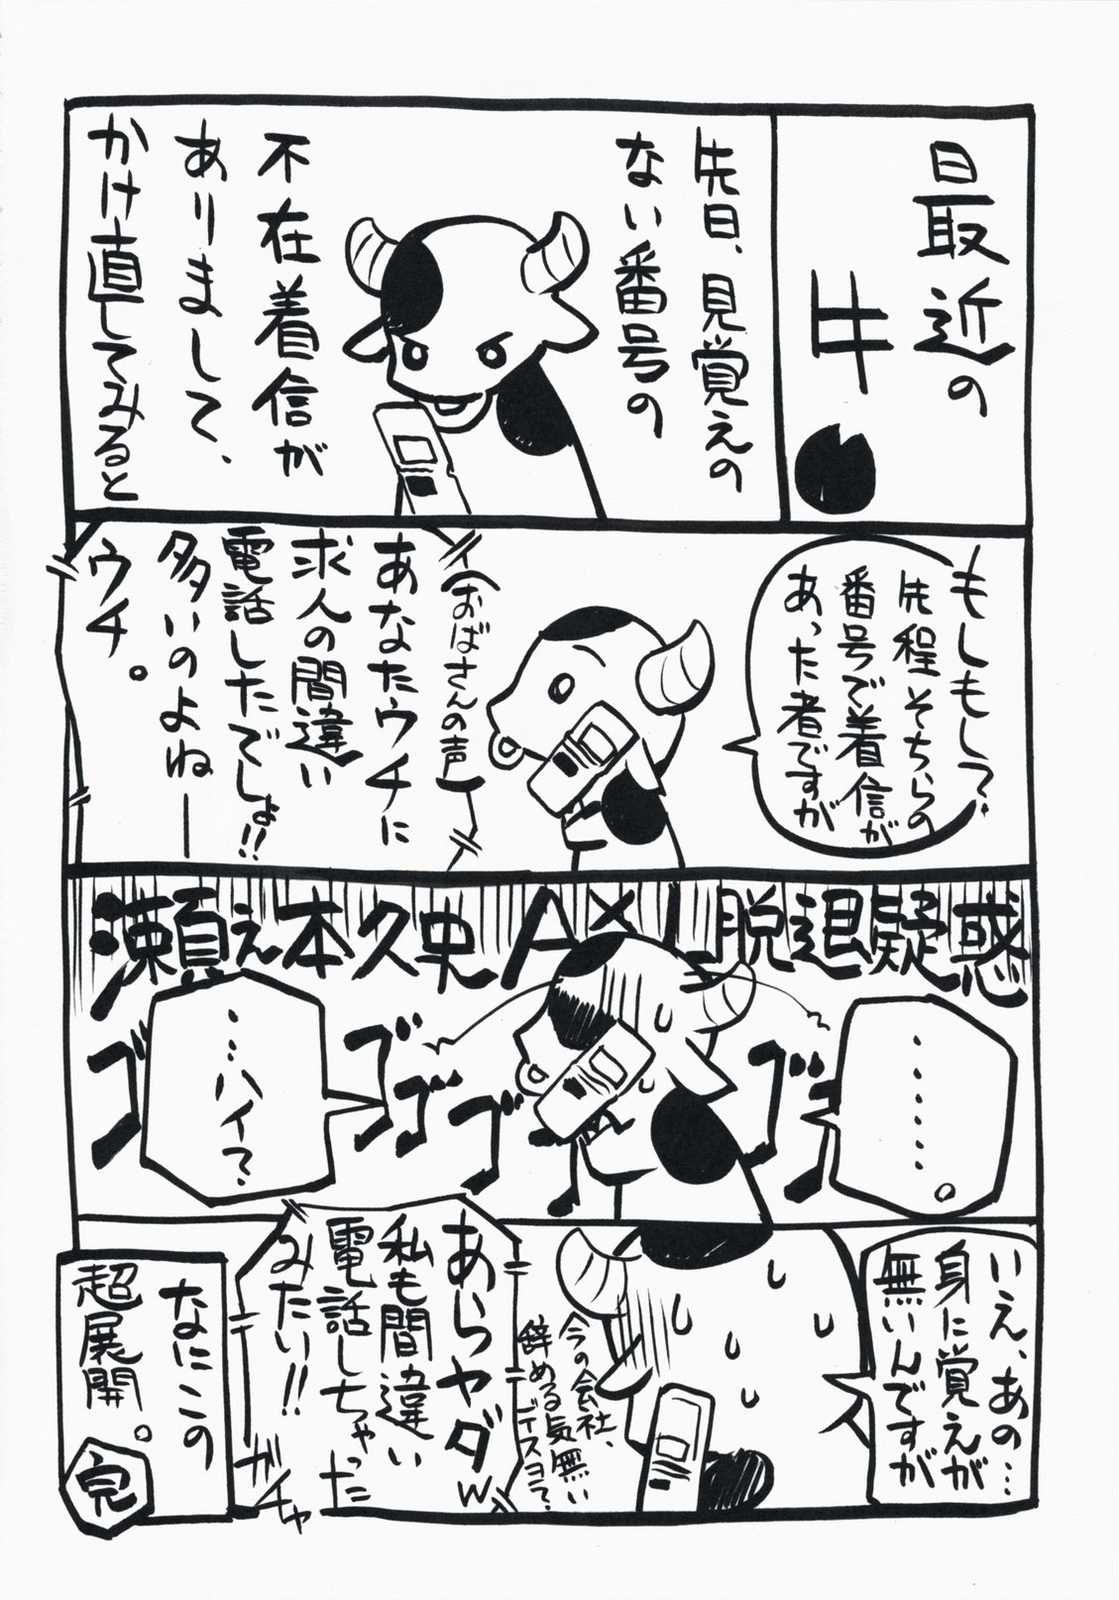 最近の
牛
先日、見覚えの
ない番号の
不在着信が
ありまして、
かけ直してみると
もしもし？
先程そちらの
番号で着信が
あった者ですが
(おばさんの声)
あなたウチに
求人の間違い
電話したでしょ!!
多いのよねー
ウチ。
瀬之本久史AXJ脱退疑惑
・・・・・・。
ゴゴゴゴゴ
・・・ハイ？
いえ、あの…
身に覚えが
無いんですが
今の会社、
辞める気無い
デイスヨ？
あらヤダw
私も間違い
電話しちゃった
みたい!!
ガチャ
なにこの
超展開。
完